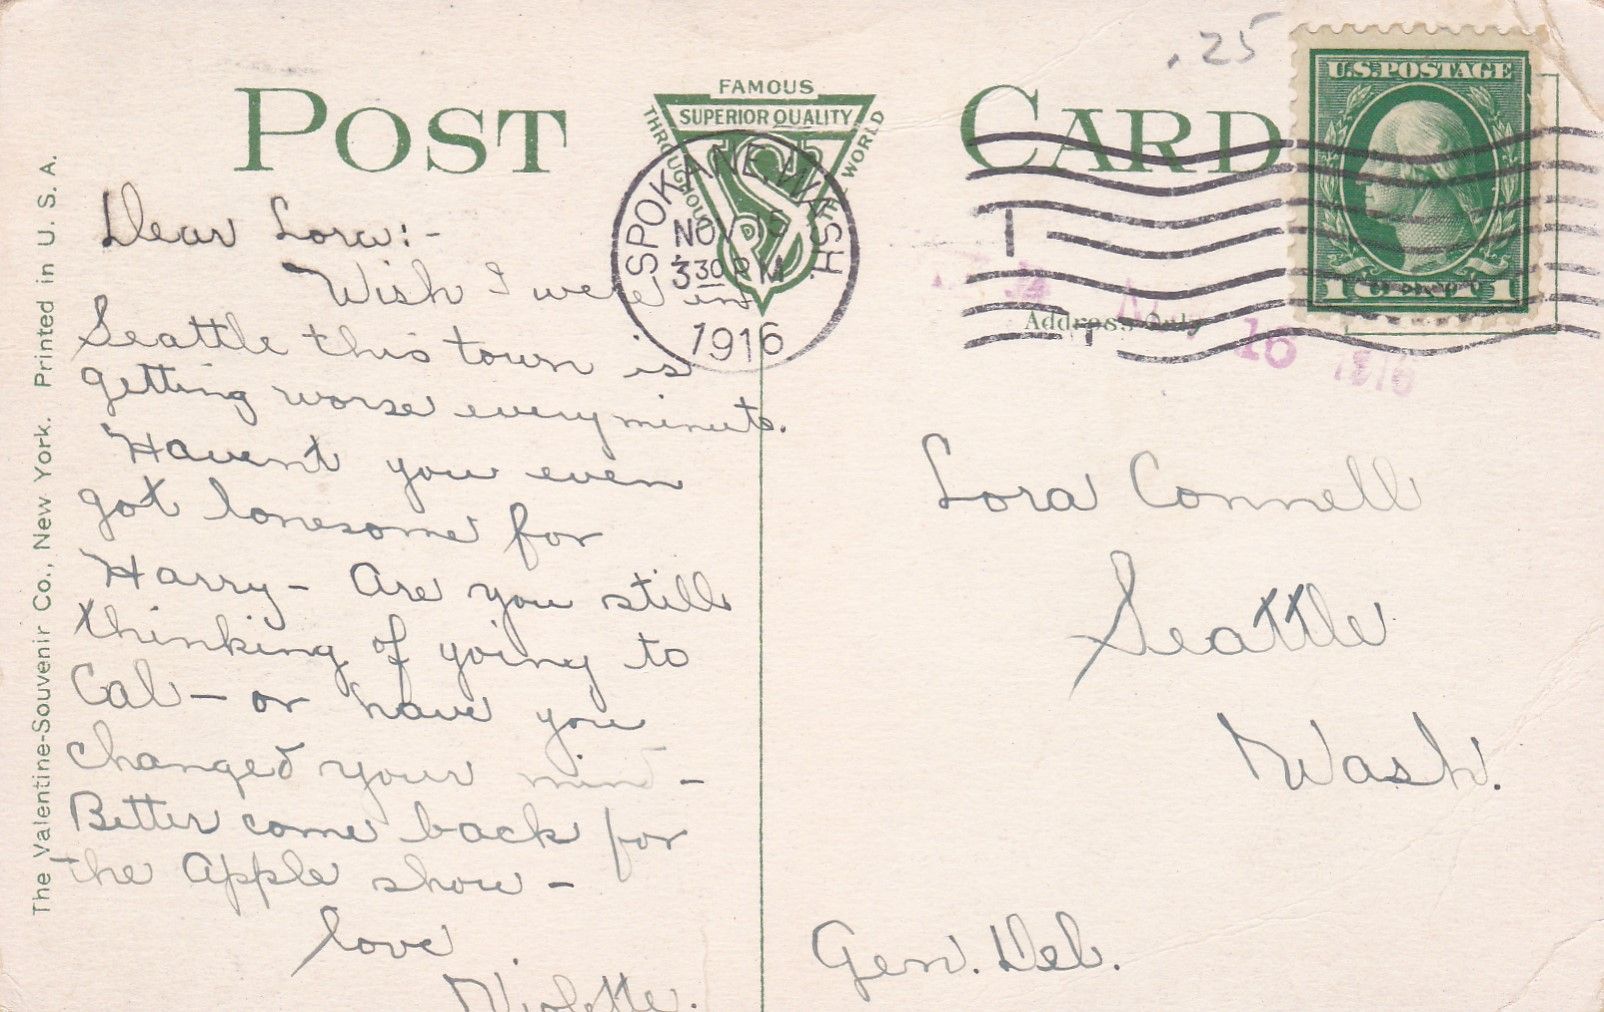 .25
POST CARD
FAMOUS
SUPERIOR QUALITY
THROUGHOUT THE WORLD
U.S. POSTAGE
1 CENT 1
SPOKANE, WASH.
NOV 15
3 30 PM
1916
Address Only
Nov 16 1916
The Valentine-Souvenir Co., New York. Printed in U. S. A.
Dear Lora:-
Wish I were in
Seattle this town is
getting worse every minute.
Havent you even
got lonesome for
Harry - Are you still
thinking of going to
Cal - or have you
changed your mind -
Better come back for
the Apple show -
Love
Violette.
Lora Connell
Seattle
Wash.
Gen. Del.